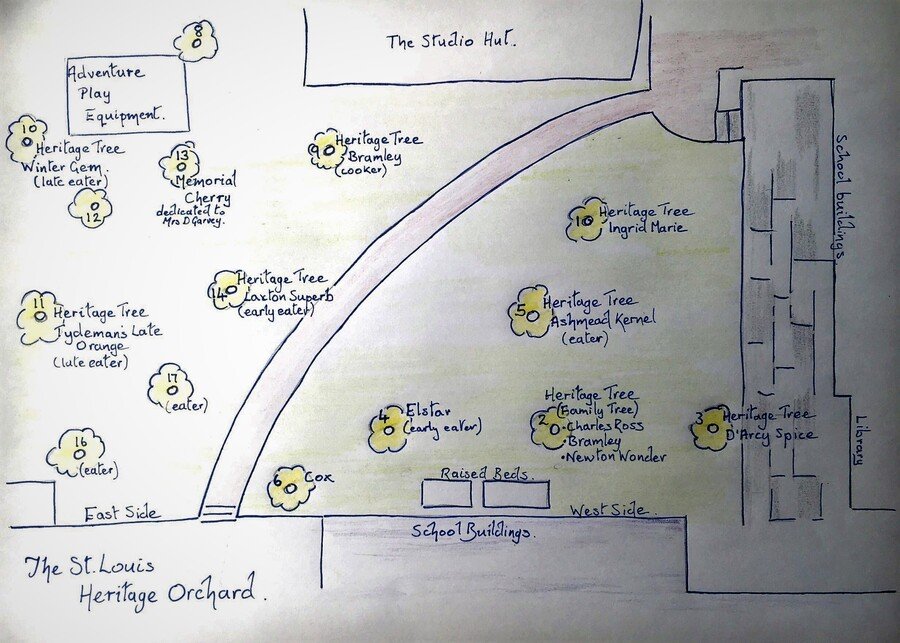 The Studio Hut.
8
Adventure
Play
Equipment.
10
Heritage Tree
Winter Gem.
(late eater)
12
13
Memorial
Cherry
dedicated to
Mrs D Garvey.
9
Heritage Tree
Bramley
(cooker)
Heritage Tree
Ingrid Marie
14
Heritage Tree
Laxton Superb
(early eater)
5
Heritage Tree
Ashmead Kernel
(eater)
11
Heritage Tree
Tydeman's Late
Orange
(late eater)
17
(eater)
16
(eater)
4
Elstar
(early eater)
2
Heritage Tree
(Family Tree)
• Charles Ross
• Bramley
• Newton Wonder
3
Heritage Tree
D'Arcy Spice
6
Cox
Raised Beds.
East Side
West Side.
School Buildings.
School buildings.
Library
The St. Louis
Heritage Orchard.